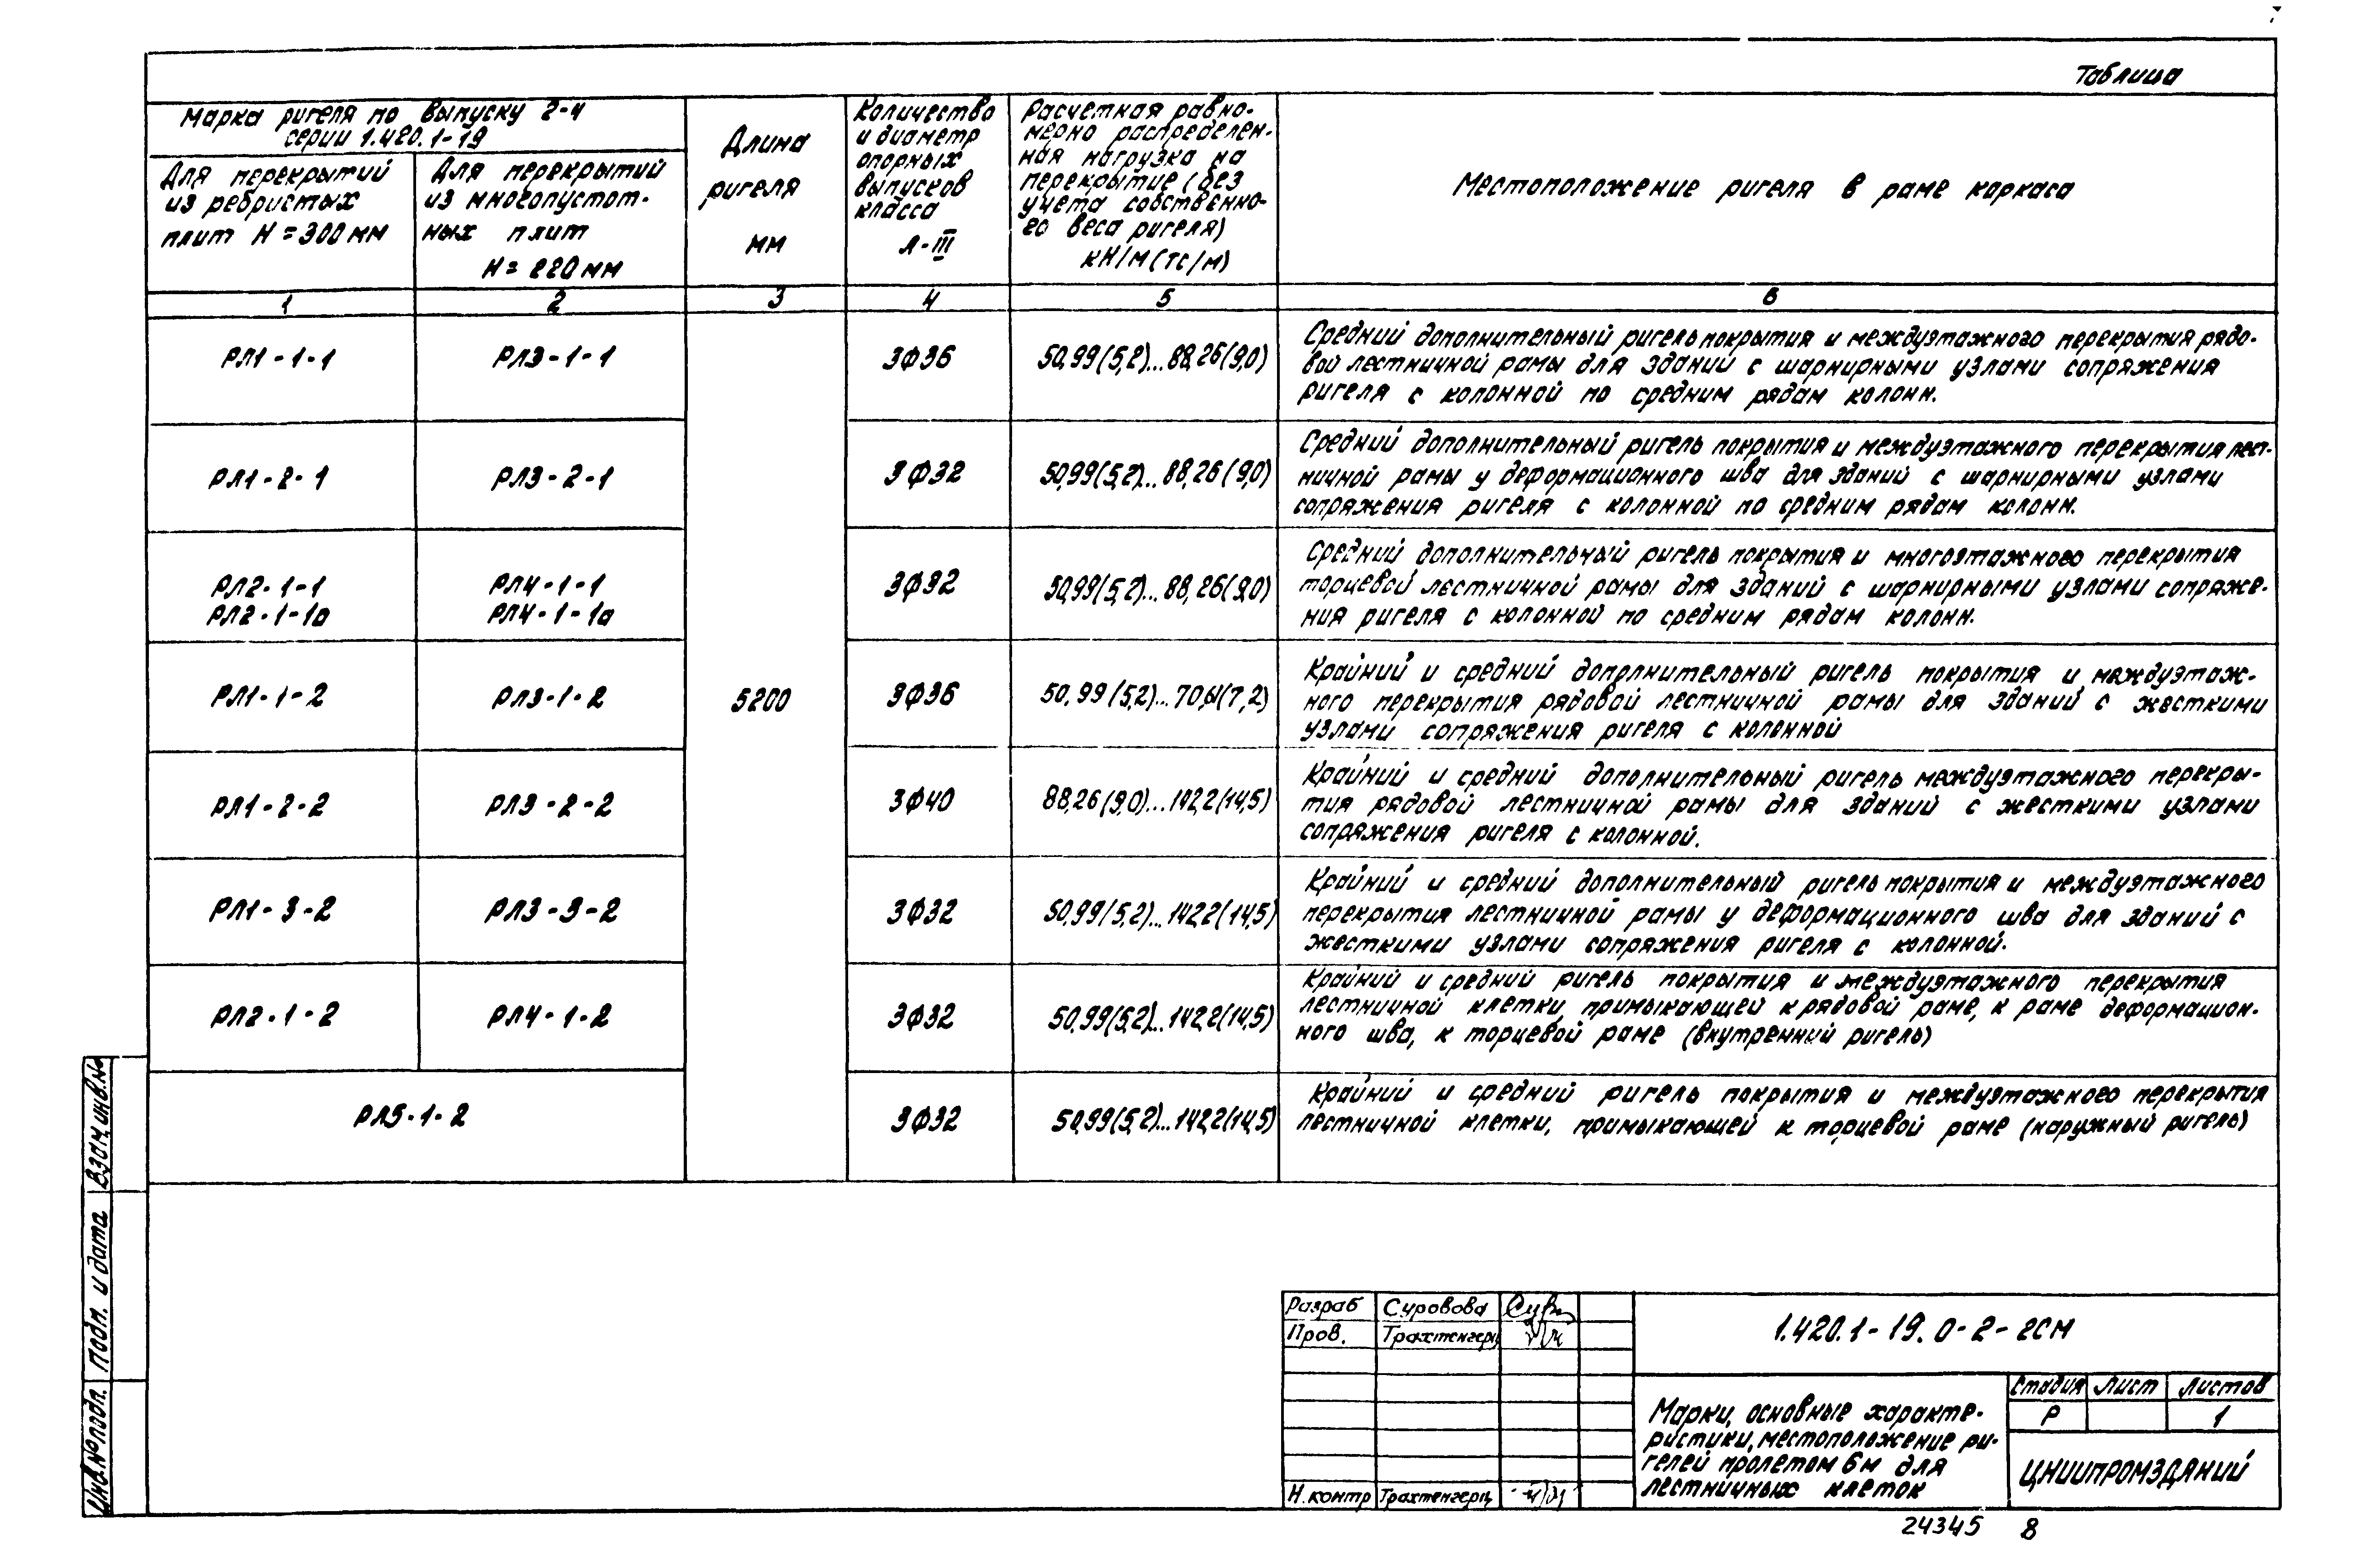 Таблица
Марка ригеля по выпуску 2-4
серии 1.420.1-19
Для перекрытий
из ребристых
плит H = 300 мм
Для перекрытий
из многопустот-
ных плит
H = 220 мм
Длина
ригеля
мм
Количество
и диаметр
опорных
выпусков
класса
А-III
Расчетная равно-
мерно распределен-
ная нагрузка на
перекрытие (без
учета собственно-
го веса ригеля)
кН/м (тс/м)
Местоположение ригеля в раме каркаса
1 2 3 4 5 6
РЛ1-1-1 РЛ3-1-1 3Ф36 50,99(5,2)...88,26(9,0)
Средний дополнительный ригель покрытия и междуэтажного перекрытия рядо-
вой лестничной рамы для зданий с шарнирными узлами сопряжения
ригеля с колонной по средним рядам колонн.
РЛ1-2-1 РЛ3-2-1 3Ф32 50,99(5,2)...88,26(9,0)
Средний дополнительный ригель покрытия и междуэтажного перекрытия лест-
ничной рамы у деформационного шва для зданий с шарнирными узлами
сопряжения ригеля с колонной по средним рядам колонн.
РЛ2-1-1 РЛ4-1-1 3Ф32 50,99(5,2)...88,26(9,0)
РЛ2-1-1а РЛ4-1-1а
Средний дополнительный ригель покрытия и многоэтажного перекрытия
торцевой лестничной рамы для зданий с шарнирными узлами сопряже-
ния ригеля с колонной по средним рядам колонн.
РЛ1-1-2 РЛ3-1-2 5200 3Ф36 50,99(5,2)...70,61(7,2)
Крайний и средний дополнительный ригель покрытия и междуэтаж-
ного перекрытия рядовой лестничной рамы для зданий с жесткими
узлами сопряжения ригеля с колонной
РЛ1-2-2 РЛ3-2-2 3Ф40 88,26(9,0)...142,2(14,5)
Крайний и средний дополнительный ригель междуэтажного перекры-
тия рядовой лестничной рамы для зданий с жесткими узлами
сопряжения ригеля с колонной.
РЛ1-3-2 РЛ3-3-2 3Ф32 50,99(5,2)...142,2(14,5)
Крайний и средний дополнительный ригель покрытия и междуэтажного
перекрытия лестничной рамы у деформационного шва для зданий с
жесткими узлами сопряжения ригеля с колонной.
РЛ2-1-2 РЛ4-1-2 3Ф32 50,99(5,2)...142,2(14,5)
Крайний и средний ригель покрытия и междуэтажного перекрытия
лестничной клетки, примыкающей к рядовой раме, к раме деформацион-
ного шва, к торцевой раме (внутренний ригель)
РЛ5-1-2 3Ф32 50,99(5,2)...142,2(14,5)
Крайний и средний ригель покрытия и междуэтажного перекрытия
лестничной клетки, примыкающей к торцевой раме (наружный ригель)
Взам.инв.№
Подп. и дата
Инв.№подл.
Разраб Суровова
Пров. Трахтенгерц
Н.контр Трахтенгерц
1.420.1-19.0-2-2СМ
Марки, основные характе-
ристики, местоположение ри-
гелей пролетом 6м для
лестничных клеток
Стадия Лист Листов
Р 1
ЦНИИПРОМЗДАНИЙ
24345 8